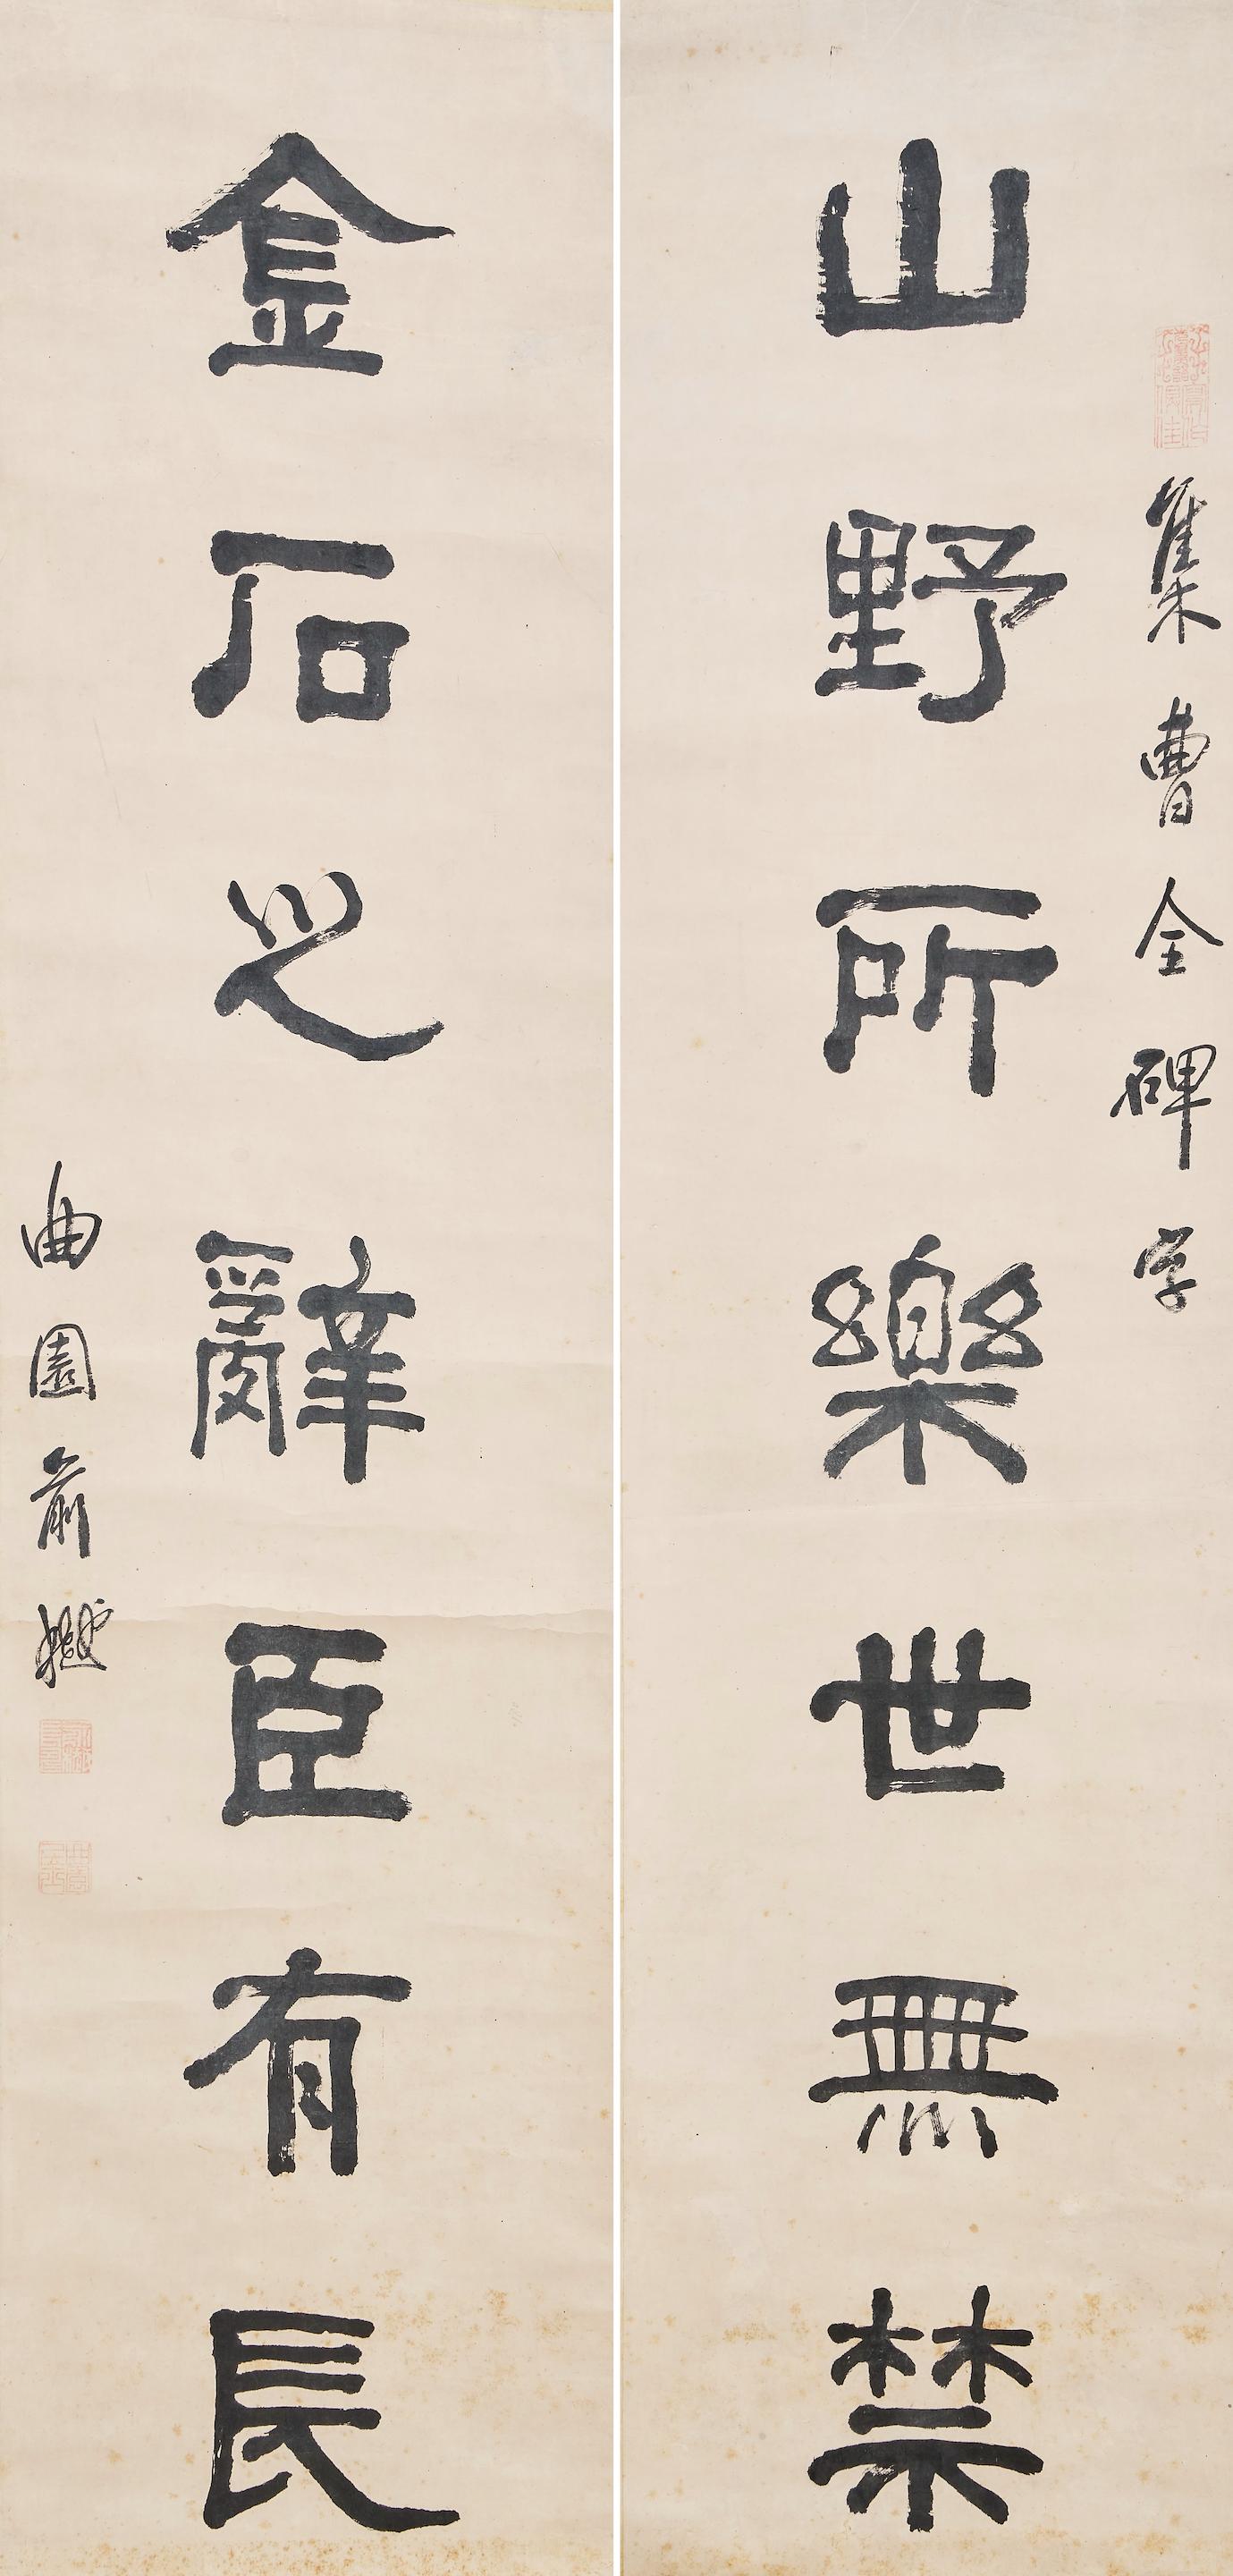 集曹全碑字
山野所樂世無禁
金石之辭臣有長
曲園俞樾